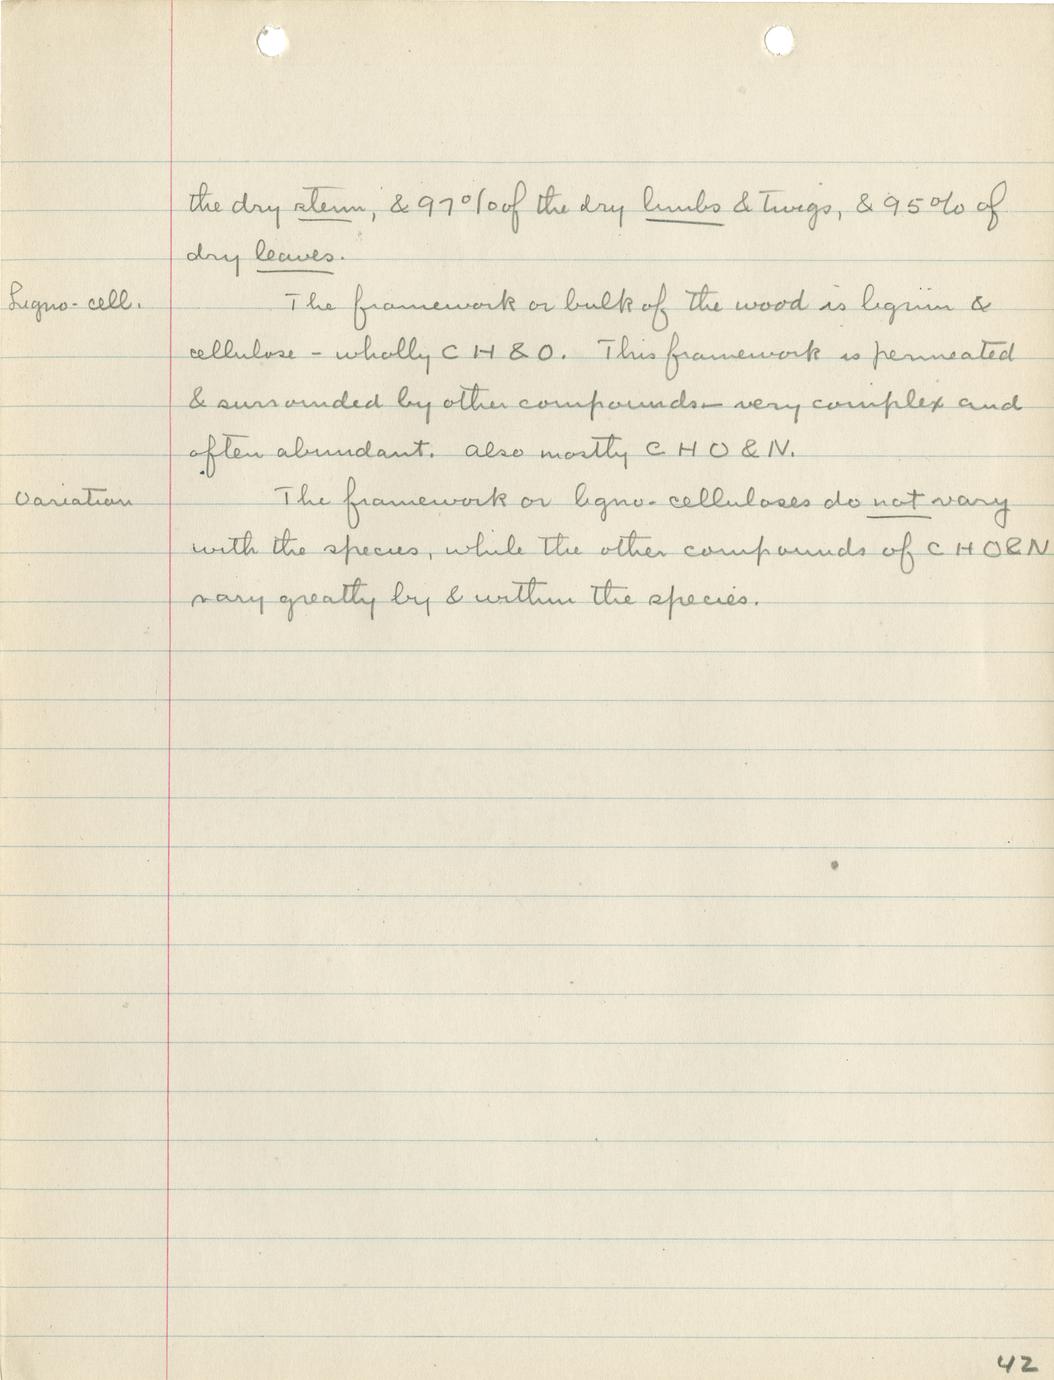 the dry stem, & 97% of the dry limbs & twigs, & 95% of
dry leaves.
Ligno-cell. The framework or bulk of the wood is lignin &
cellulose - wholly C H & O. This framework is permeated
& surrounded by other compounds - very complex and
often abundant. also mostly C H O & N.
Variation The framework or ligno-celluloses do not vary
with the species, while the other compounds of C H O & N
vary greatly by & within the species.
42